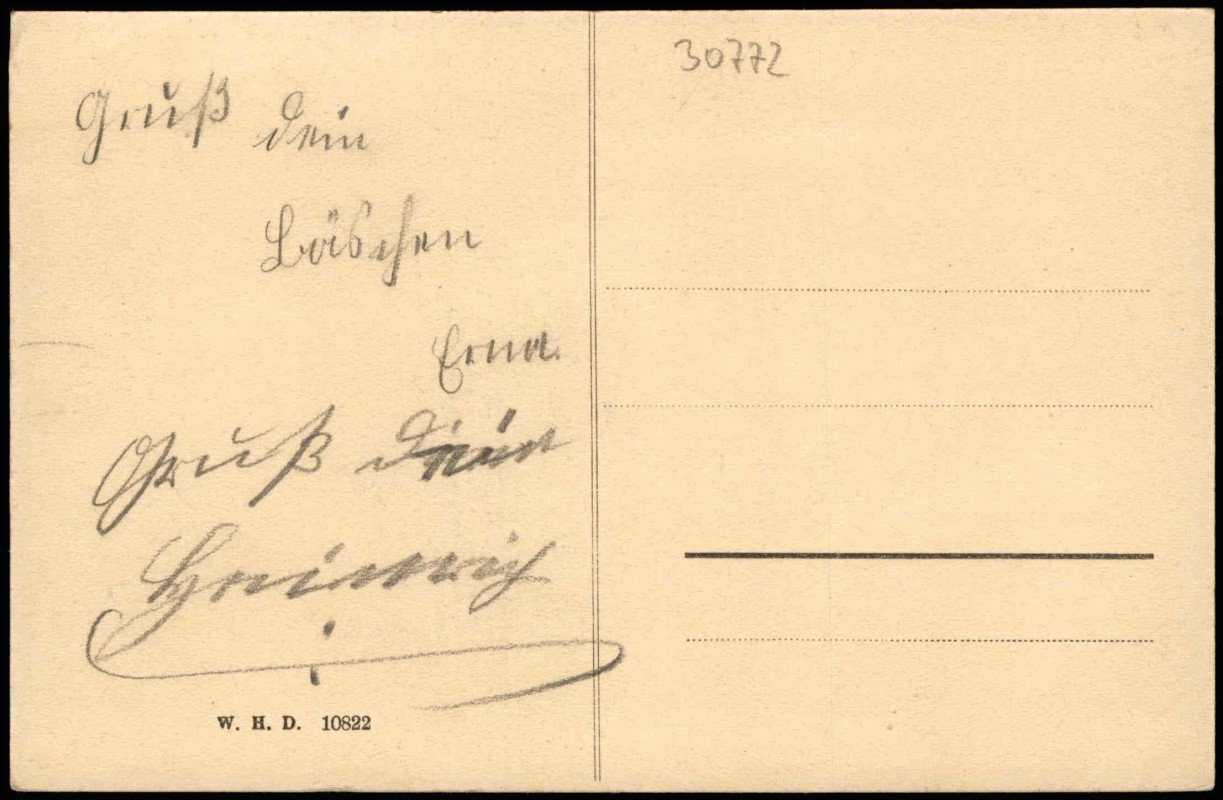 30772
Gruß dein
Bäschen
Erna.
Gruß dein
Heinrich
W. H. D. 10822